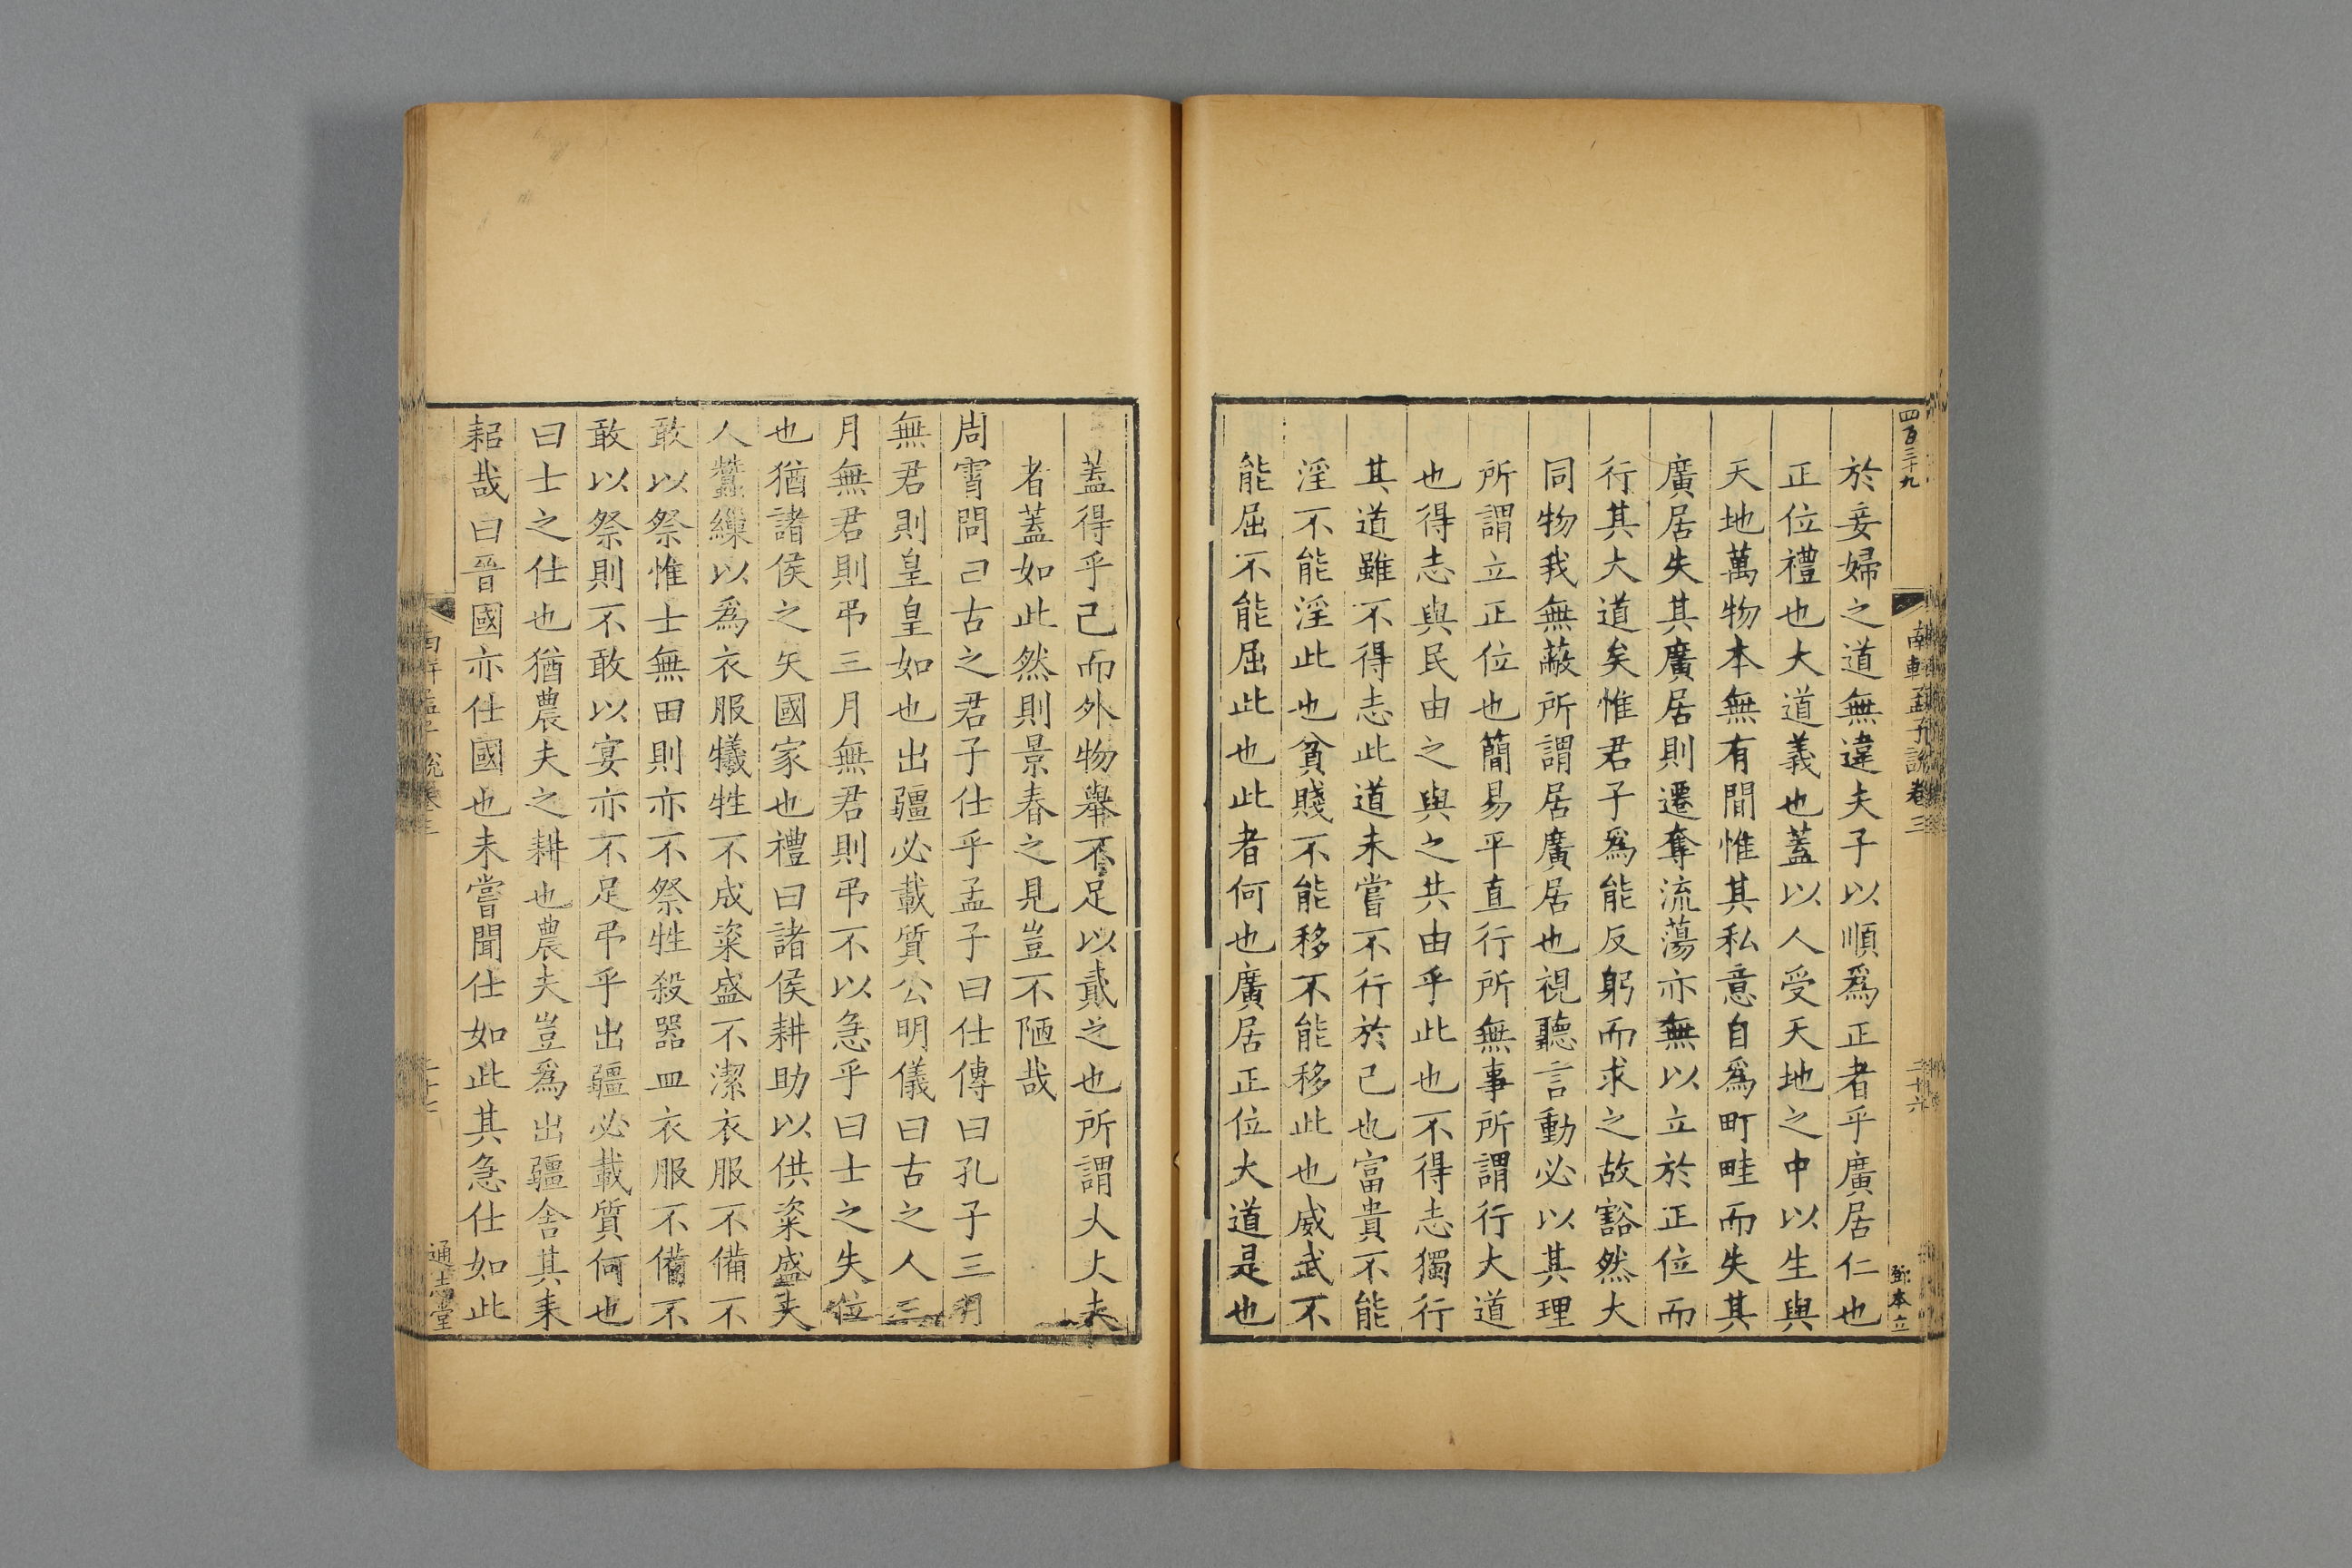 四百三十九
南軒孟子說卷三
二十六
鄧本立
於妾婦之道無違夫子以順爲正者乎廣居仁也
正位禮也大道義也蓋以人受天地之中以生與
天地萬物本無有間惟其私意自爲町畦而失其
廣居失其廣居則遷奪流蕩亦無以立於正位而
行其大道矣惟君子爲能反躬而求之故豁然大
同物我無蔽所謂居廣居也視聽言動必以其理
所謂立正位也簡易平直行所無事所謂行大道
也得志與民由之與之共由乎此也不得志獨行
其道雖不得志此道未嘗不行於己也富貴不能
淫不能淫此也貧賤不能移不能移此也威武不
能屈不能屈此也此者何也廣居正位大道是也
蓋得乎己而外物舉不足以貳之也所謂大丈夫
者蓋如此然則景春之見豈不陋哉
周霄問曰古之君子仕乎孟子曰仕傳曰孔子三月
無君則皇皇如也出疆必載質公明儀曰古之人三
月無君則弔三月無君則弔不以急乎曰士之失位
也猶諸侯之失國家也禮曰諸侯耕助以供粢盛夫
人蠶繅以爲衣服犧牲不成粢盛不潔衣服不備不
敢以祭惟士無田則亦不祭牲殺器皿衣服不備不
敢以祭則不敢以宴亦不足弔乎出疆必載質何也
曰士之仕也猶農夫之耕也農夫豈爲出疆舍其耒
耜哉曰晉國亦仕國也未嘗聞仕如此其急仕如此
南軒孟子說卷三
二十七
通志堂